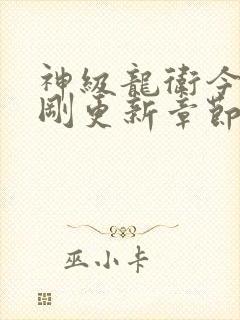 神級龍衛今
剛更新章節
巫小卡